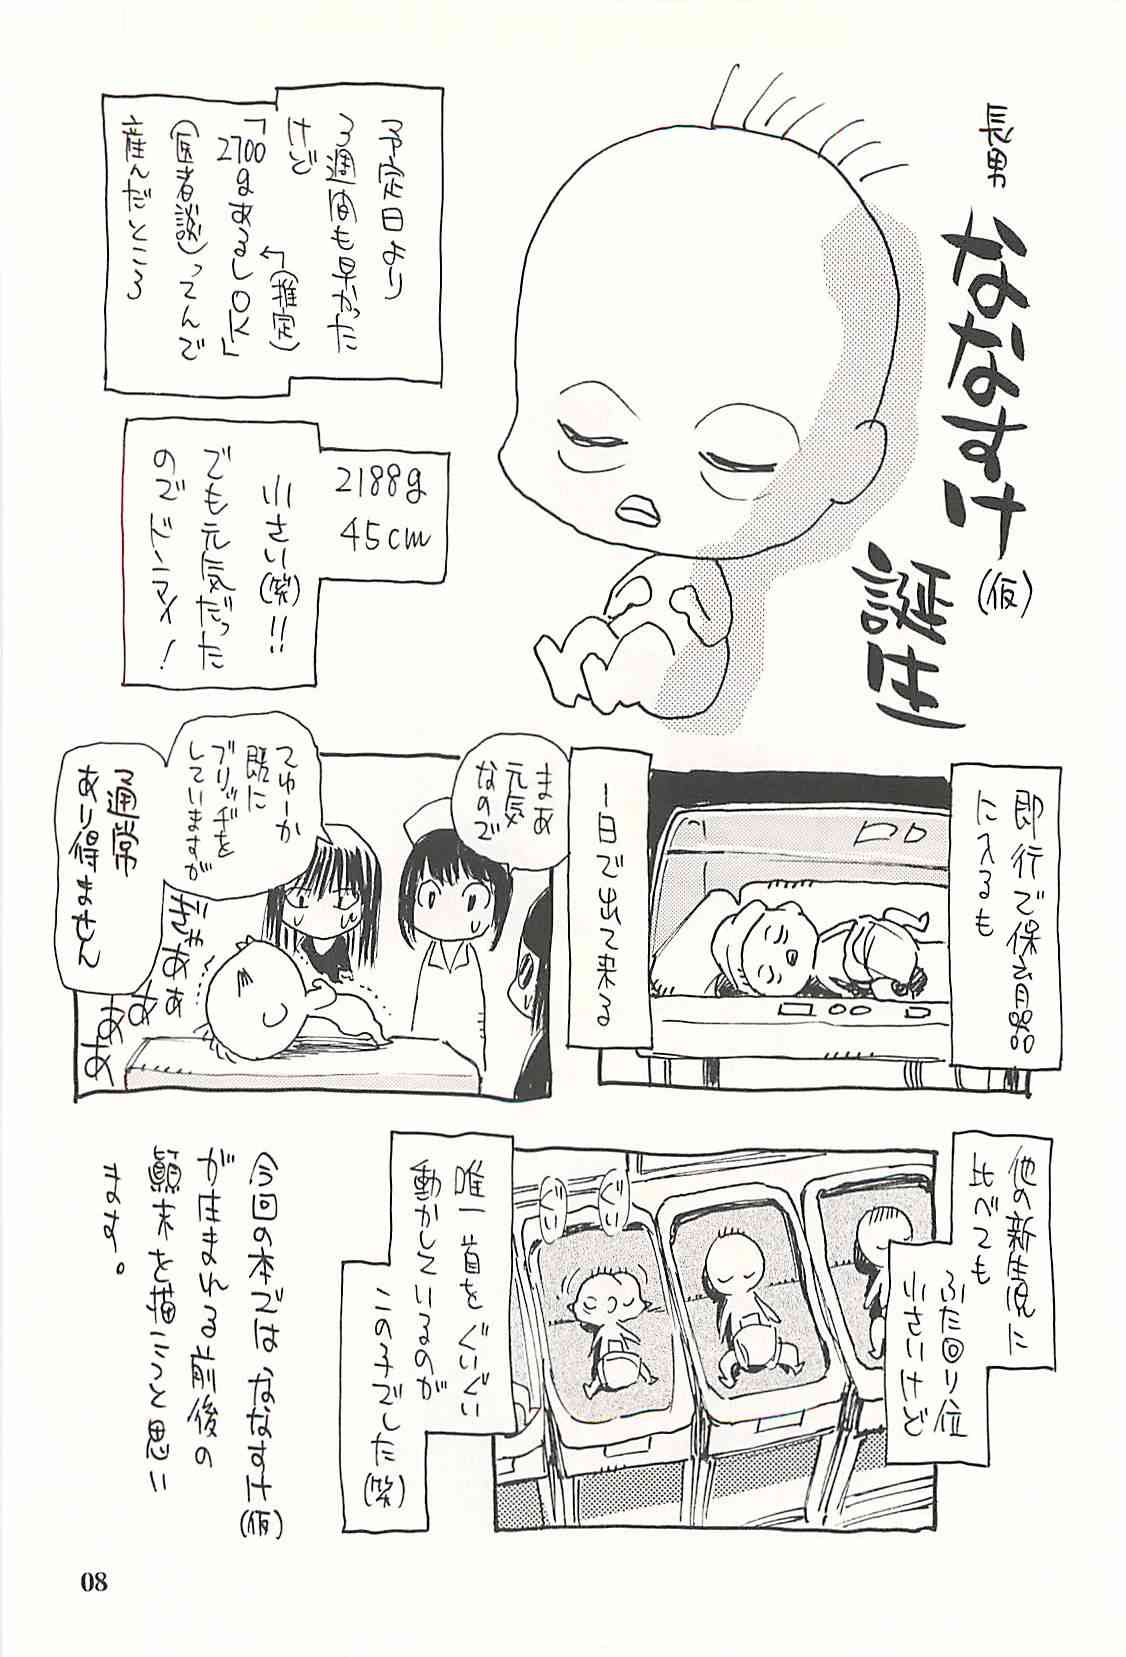 長男
ななすけ
(仮)
誕生
予定日より
3週間も早かった
けど
←(推定)
「2700gあるしOK」
(医者談)ってんで
産んだところ
2188g
45cm
小さい(笑)!!
でも元気だった
のでドンマイ!
即行で保育器
に入るも
一日で出て来る
まあ
元気
なので
てゆーか
既に
ブリッヂを
していますが
通常
あり得ません
ぎゃあああああ
他の新生児に
比べても
ふた回り位
小さいけど
ぐいぐい
唯一首をぐいぐい
動かしているのが
この子でした(笑)
今回の本では、ななすけ(仮)
が生まれる前後の
顛末を描こうと思い
ます。
08